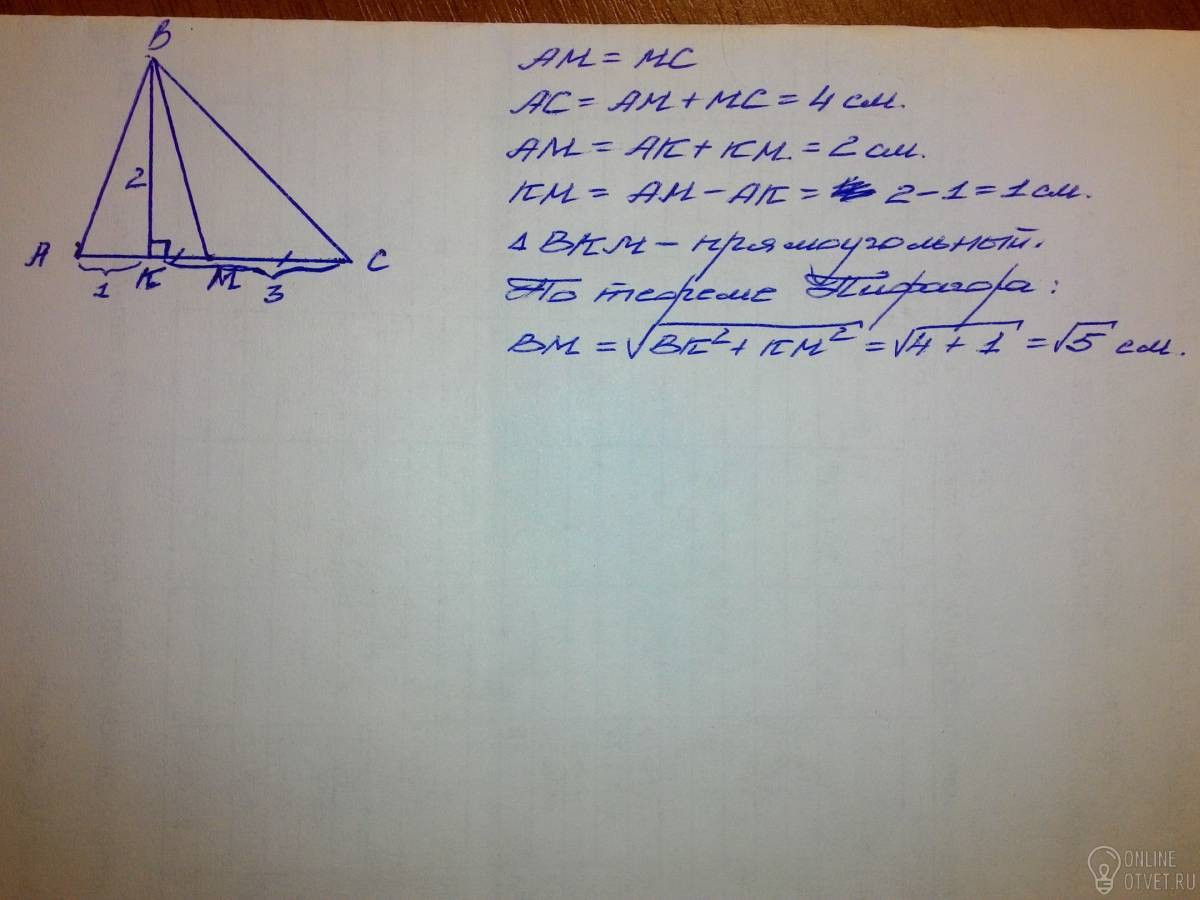 B
2
A
K
M
C
1
3
AM = MC
AC = AM + MC = 4 см.
AM = AK + KM = 2 см.
KM = AM - AK = 2-1 = 1 см.
Δ BKM - прямоугольный.
По теореме Пифагора:
BM = √BK² + KM² = √4 + 1 = √5 см.
ONLINE
OTVET.RU